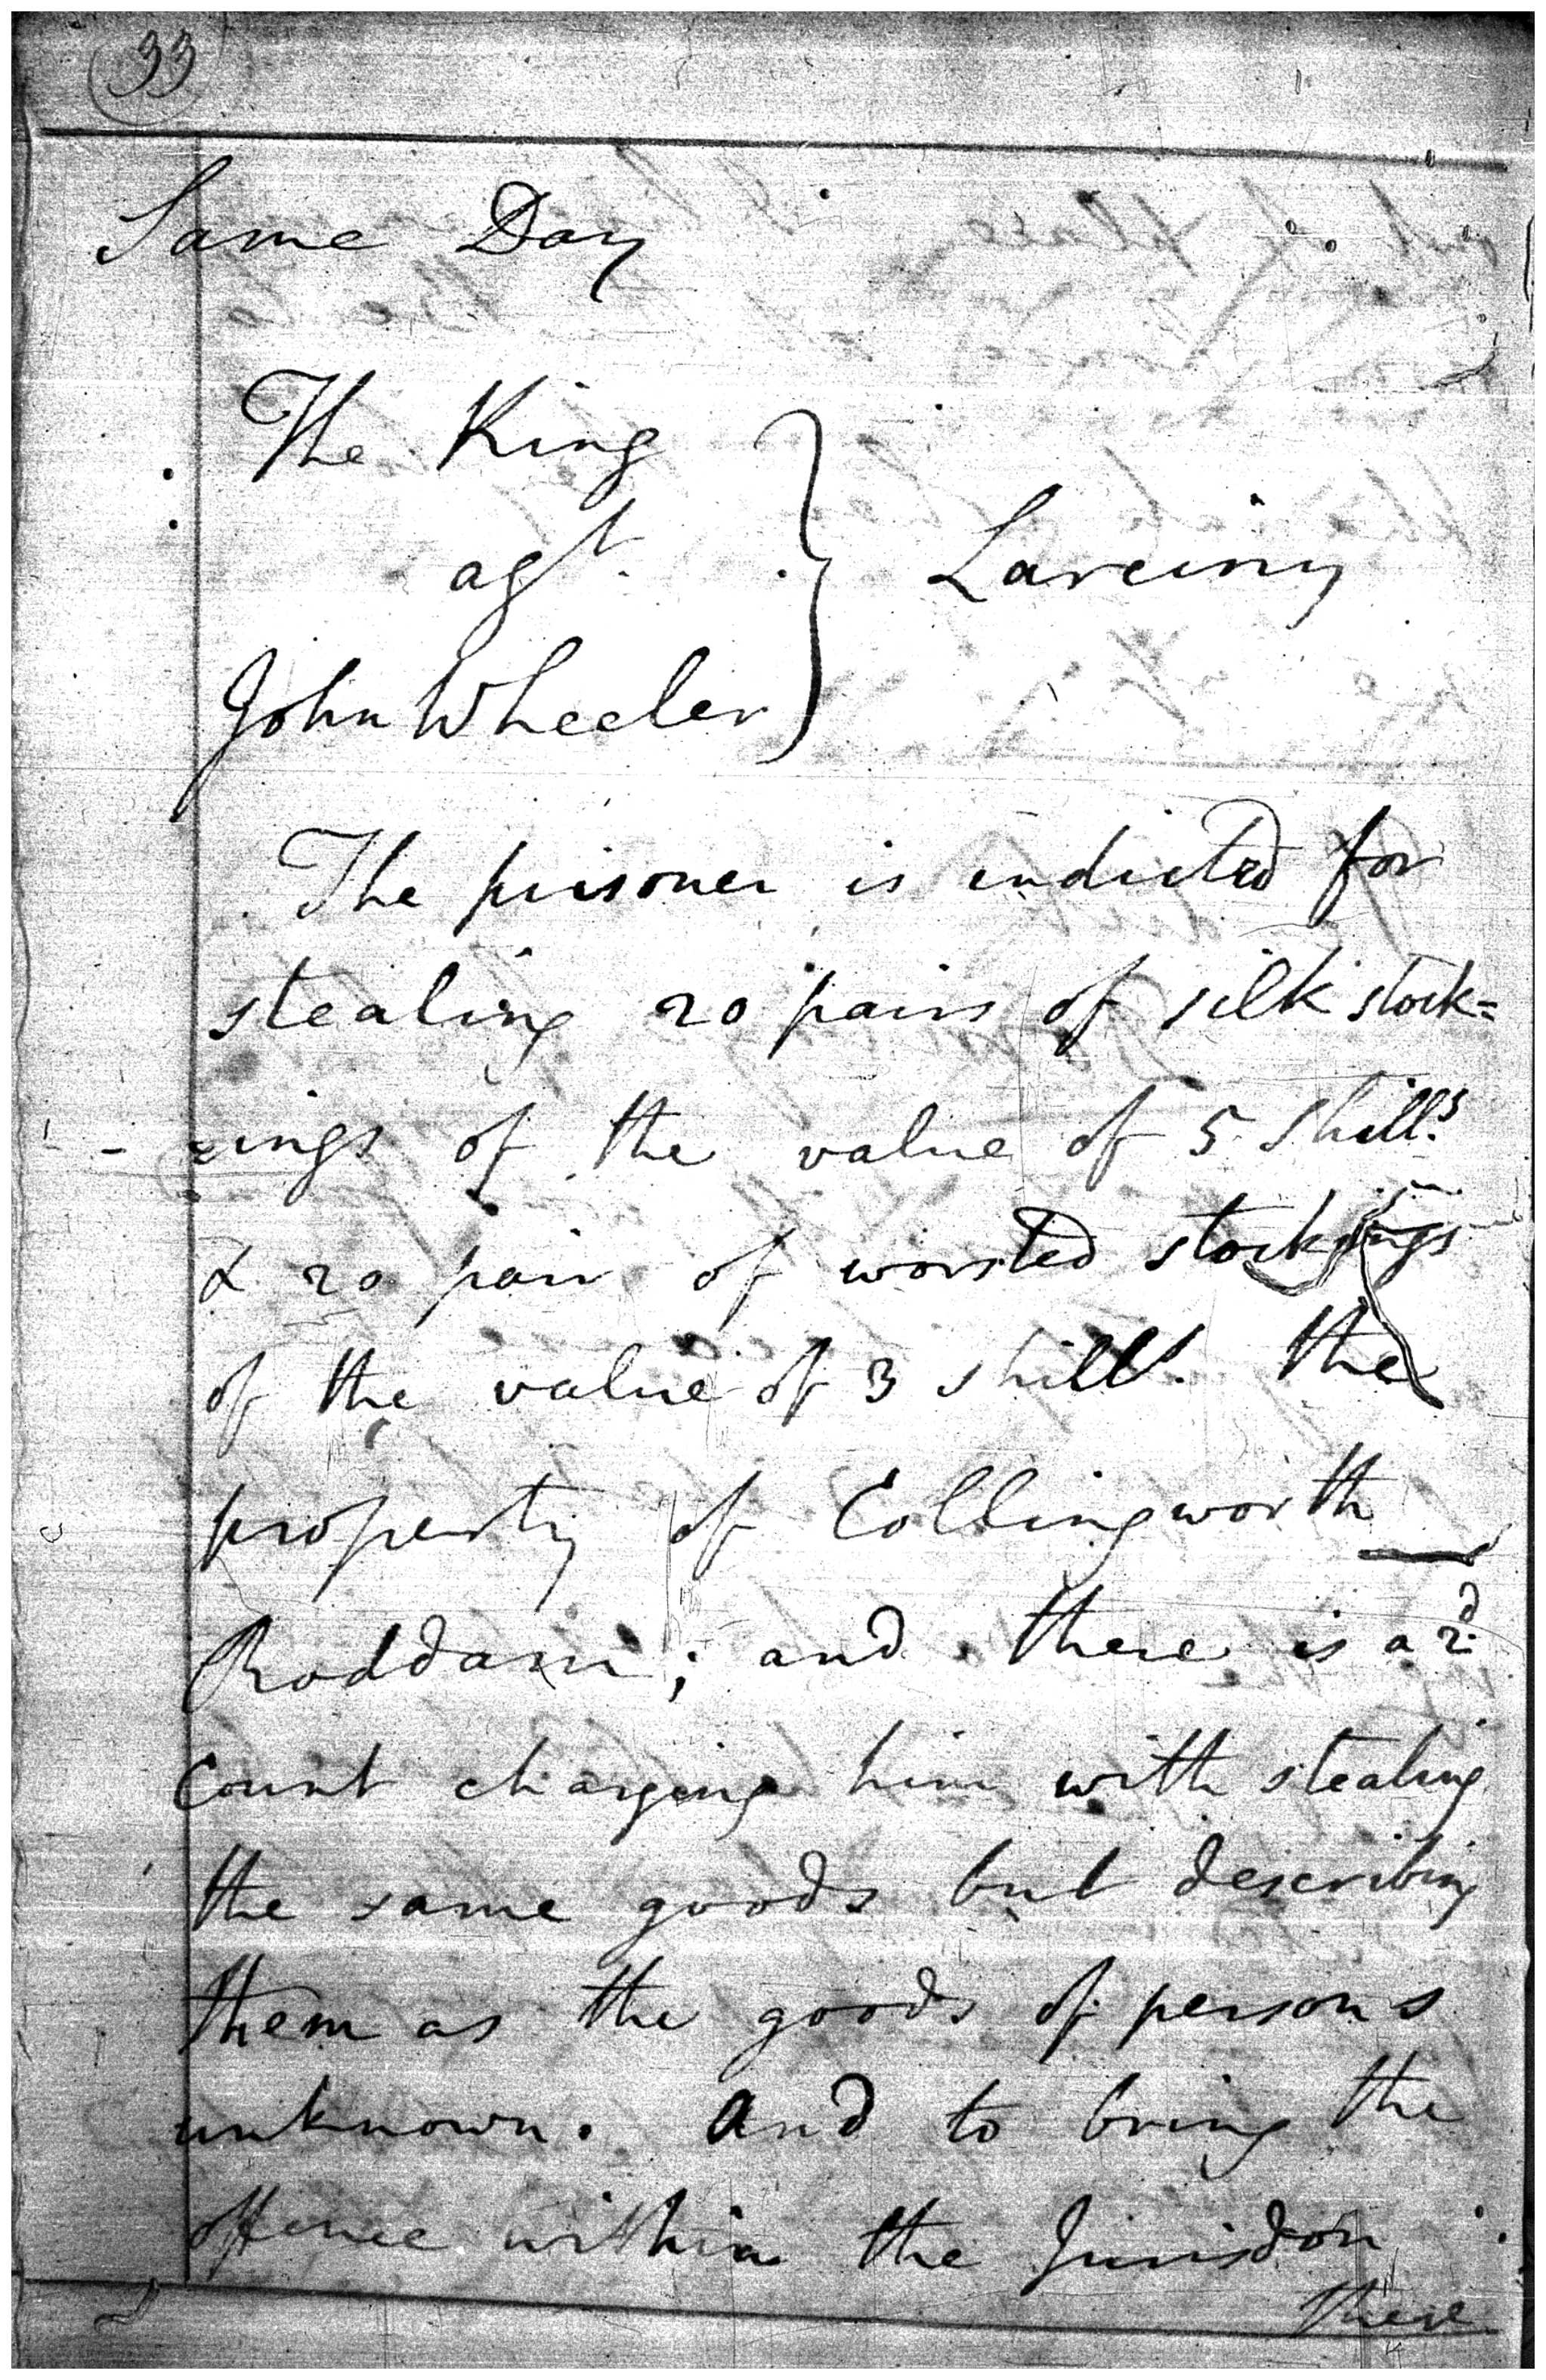 33
Same Day
The King
agt.
John Wheeler } Larciny
The prisoner is indicted for
stealing 20 pairs of silk stock=
=ings of the value of 5 Shills.
& 20 pair of worsted stockings
of the value of 3 shills. the
property of Collingworth
Roddam; and there is a 2d.
Count charging him with stealing
the same goods but describing
them as the goods of persons
unknown. And to bring the
offence within the Jurisdon
there